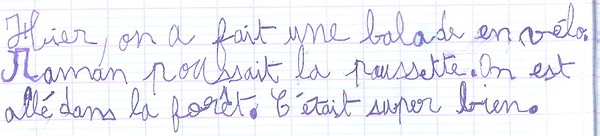 Hier, on a fait une balade en vélo.
Maman poussait la poussette. On est
allé dans la forêt. C'était super bien.